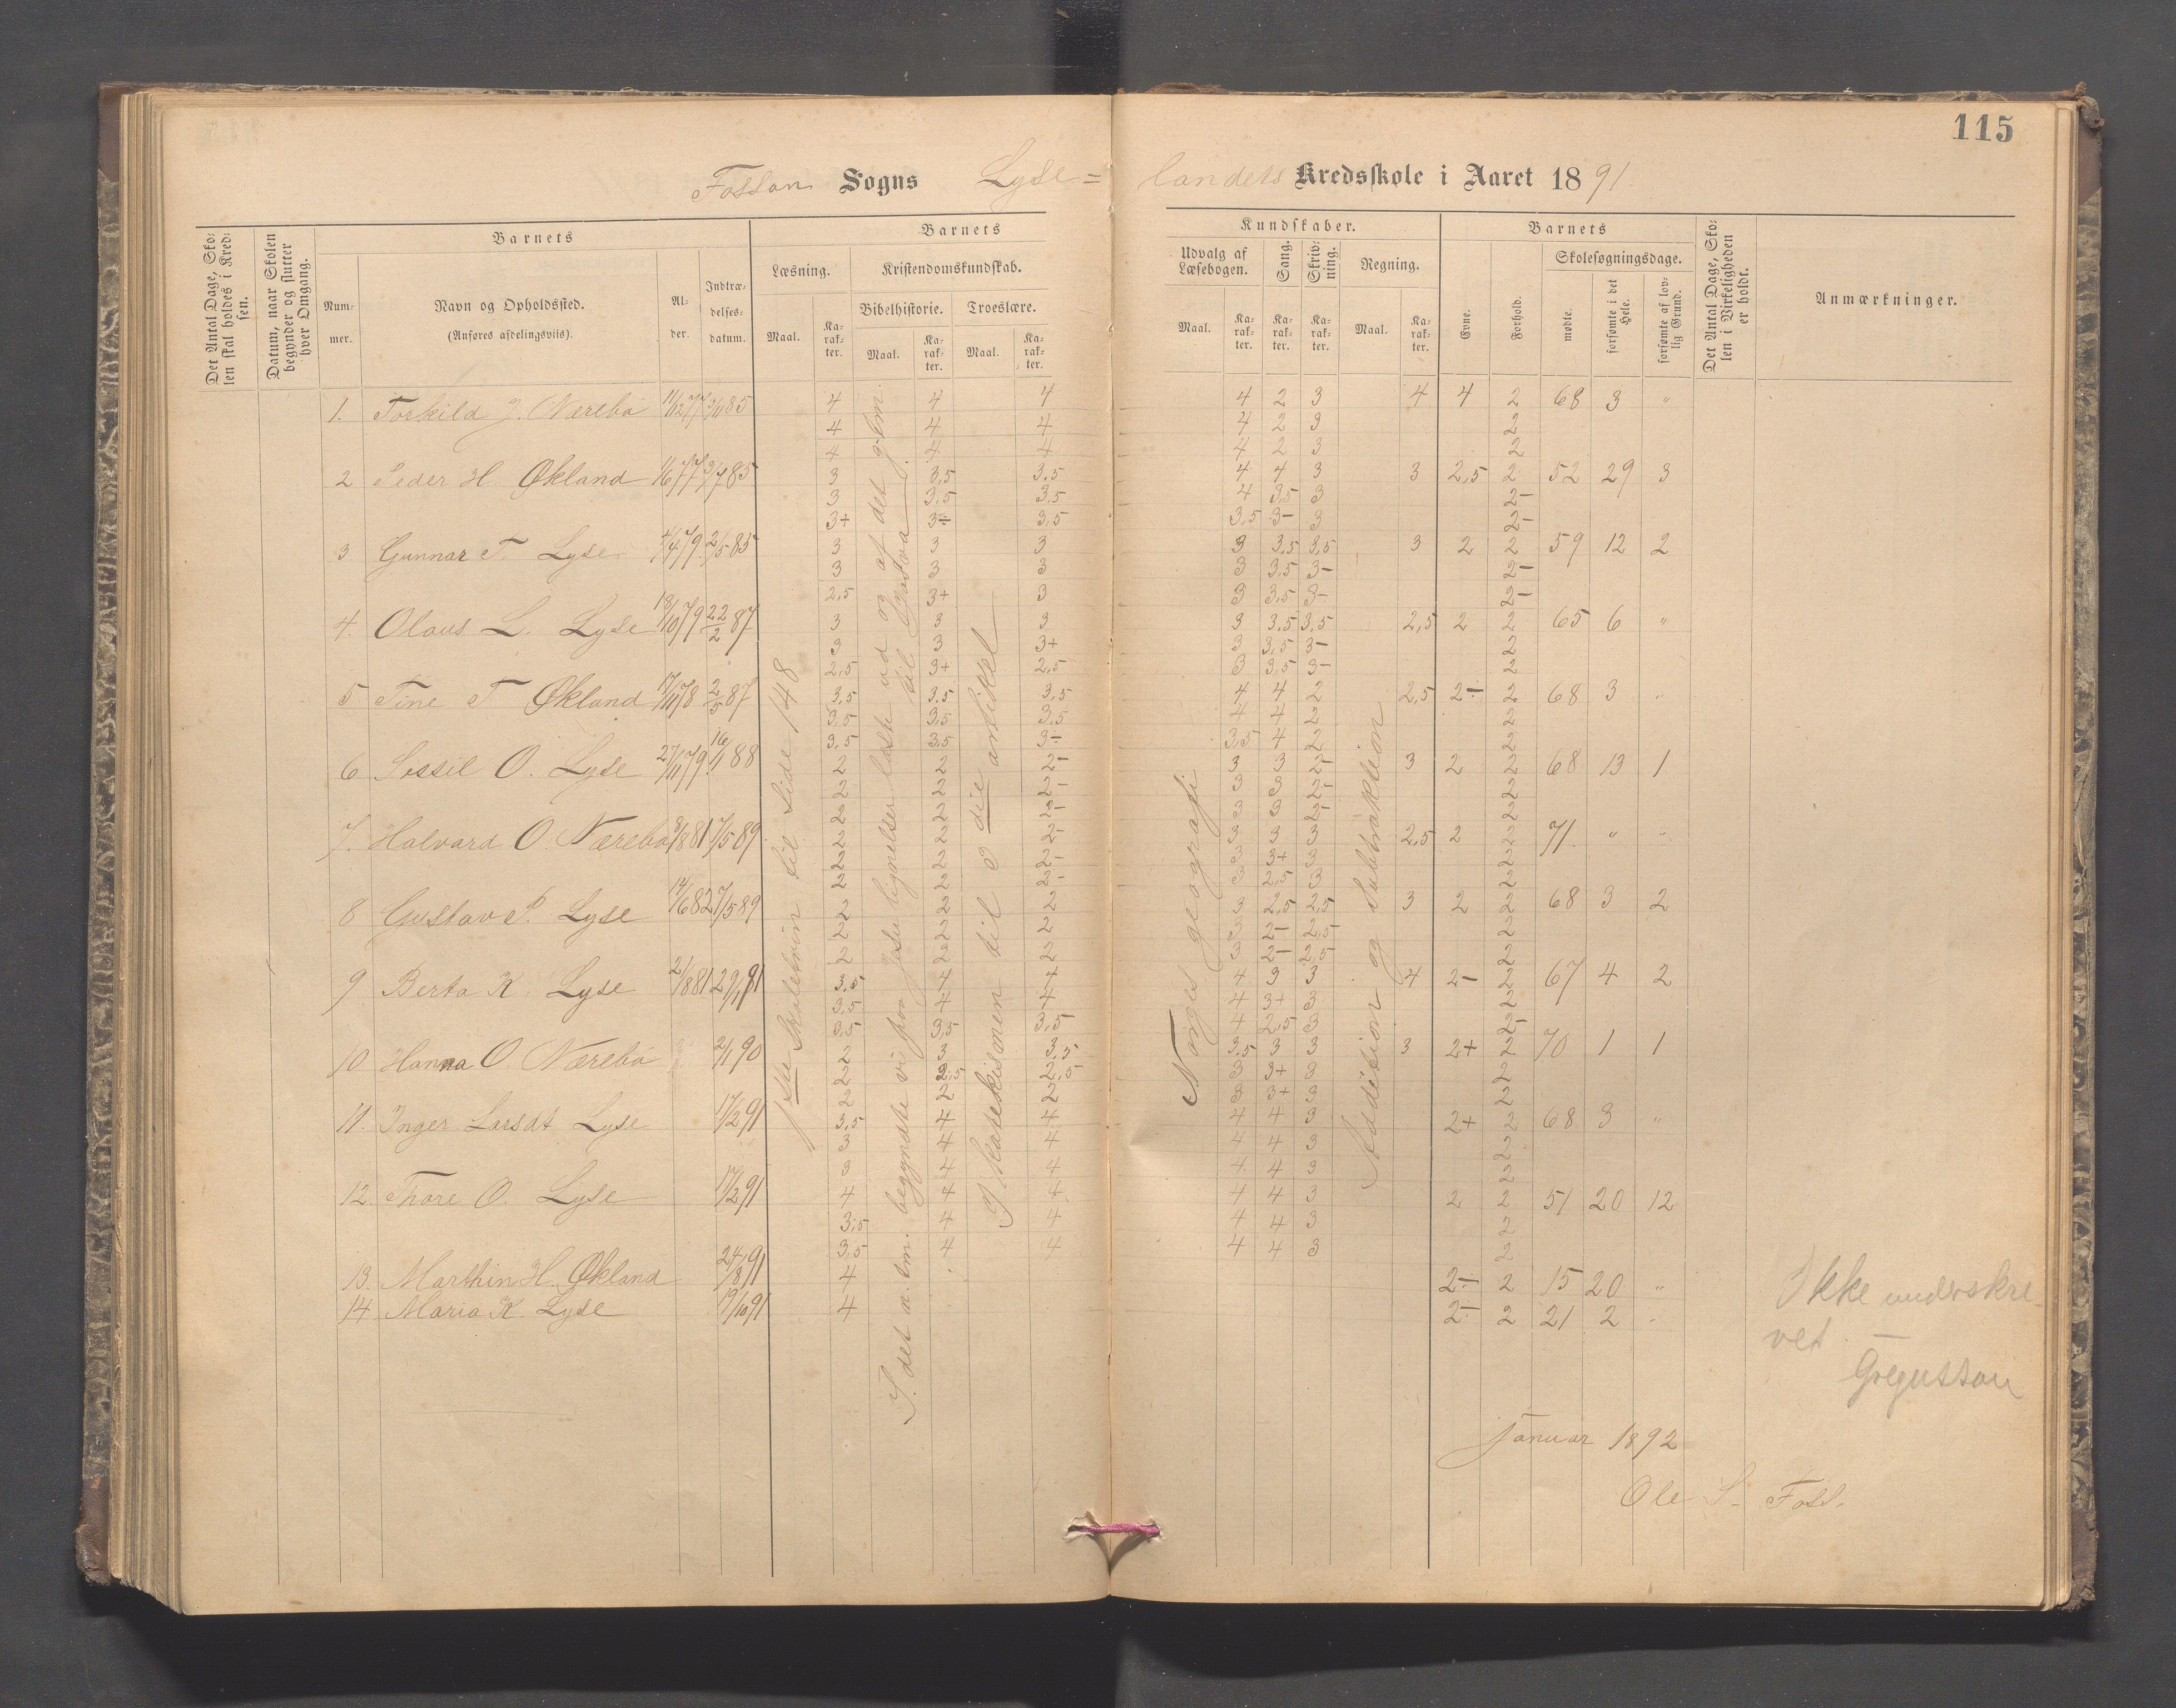 115
Fossan Sogns Lyse=landets Kredsskole i Aaret 1891
Det Antal Dage, Skolen skal holdes i Kredsen.
Datum, naar Skolen begynder og slutter hver Omgang.
Barnets
Nummer.
Navn og Opholdssted.
(Anføres afdelingsviis).
Alder.
Indtrædelsesdatum.
Barnets
Læsning.
Maal.
Karakter.
Kristendomskundskab.
Bibelhistorie.
Maal.
Karakter.
Troeslære.
Maal.
Karakter.
Kundskaber.
Udvalg af Læsebogen.
Maal.
Karakter.
Sang.
Karakter.
Skrivning.
Karakter.
Regning.
Maal.
Karakter.
Barnets
Evne.
Forhold.
Skolesøgningsdage.
mødte.
forsømte i det Hele.
forsømte af lovlig Grund.
Det Antal Dage, Skolen i Virkeligheden er holdt.
Anmærkninger.
1. Torkild J. Nærebø 11/12 77 3/4 85 4 4 4 4 2 3 4 4 2 68 3 "
4 4 4 4 2 3 2
4 4 4 4 2 3 2
2 Peder H. Økland 1/6 77 3/7 85 3 3,5 3,5 4 4 3 3 2,5 2 52 29 3
3 3,5 3,5 4 3,5 3 2-
3+ 3- 3,5 3,5 3- 3 2-
3 Gunnar T. Lyse 4/4 79 2/5 85 3 3 3 3 3,5 3,5 3 2 2 59 12 2
3 3 3 3 3,5 3- 2-
2,5 3+ 3 3 3,5 3- 2-
4. Olaus L. Lyse 18/10 79 22/2 87 3 3 3 3 3,5 3,5 2,5 2 2 65 6 "
3 3 3+ 3 3,5 3- 2
2,5 3+ 2,5 3 3,5 3- 2
5 Tine T Økland 17/11 78 2/5 87 3,5 3,5 3,5 4 4 2 2,5 2- 2 68 3 "
3,5 3,5 3,5 4 4 2 2
3,5 3,5 3- 3,5 4 2 2
6 Sossil O. Lyse 27/11 79 16/4 88 2 2 2- 3 3 2- 3 2 2 68 13 1
2 2 2- 3 3 2- 2
2 2 2- 3 3 2- 2
7. Halvard O. Nærebø 3/8 81 7/5 89 2 2 2- 3 3 3 2,5 2 2 71 " "
2 2 2- 3 3+ 3 2
2 2 2- 3 2,5 3 2
8 Gustav P. Lyse 14/6 82 7/5 89 2 2 2 3 2,5 2,5 3 2 2 68 3 2
2 2 2 3 2- 2,5 2
2 2 2 3 2- 2,5 2
9 Berta K. Lyse 2/8 81 29/1 91 3,5 4 4 4 3 3 4 2- 2 67 4 2
3,5 4 4 4 3+ 3 2
3,5 3,5 3,5 4 2,5 3 2-
10 Hanna O. Nærebø 2/1 90 2 3 3,5 3,5 3 3 3 2+ 2 70 1 1
2 2,5 2,5 3 3+ 3 2
2 2 2 3 3+ 3 2
11. Inger Larsdt Lyse 17/2 91 3,5 4 4 4 4 3 2+ 2 68 3 "
3 4 4 4 4 3 2
3 4 4 4 4 3 2
12. Thore O. Lyse 17/2 91 4 4 4 4 4 3 2 2 51 20 12
3,5 4 4 4 4 3 2
3,5 4 4 4 4 3 2
13. Marthin H. Økland 24/8 91 4 2- 2 15 20 "
14 Maria K. Lyse 19/10 91 4 2- 2 21 2 "
1ste Skoletrin til Side 148
I det n. tm. begyndte vi paa Jesu lignelser læste ud og af det g. tm.
til Gustava
I Katekismen til 3die artikkel
Norges geografi
Addision og Subtraktion
Ikke underskre-
vet. —
Gregussan
Januar 1892
Ole S. Foss.